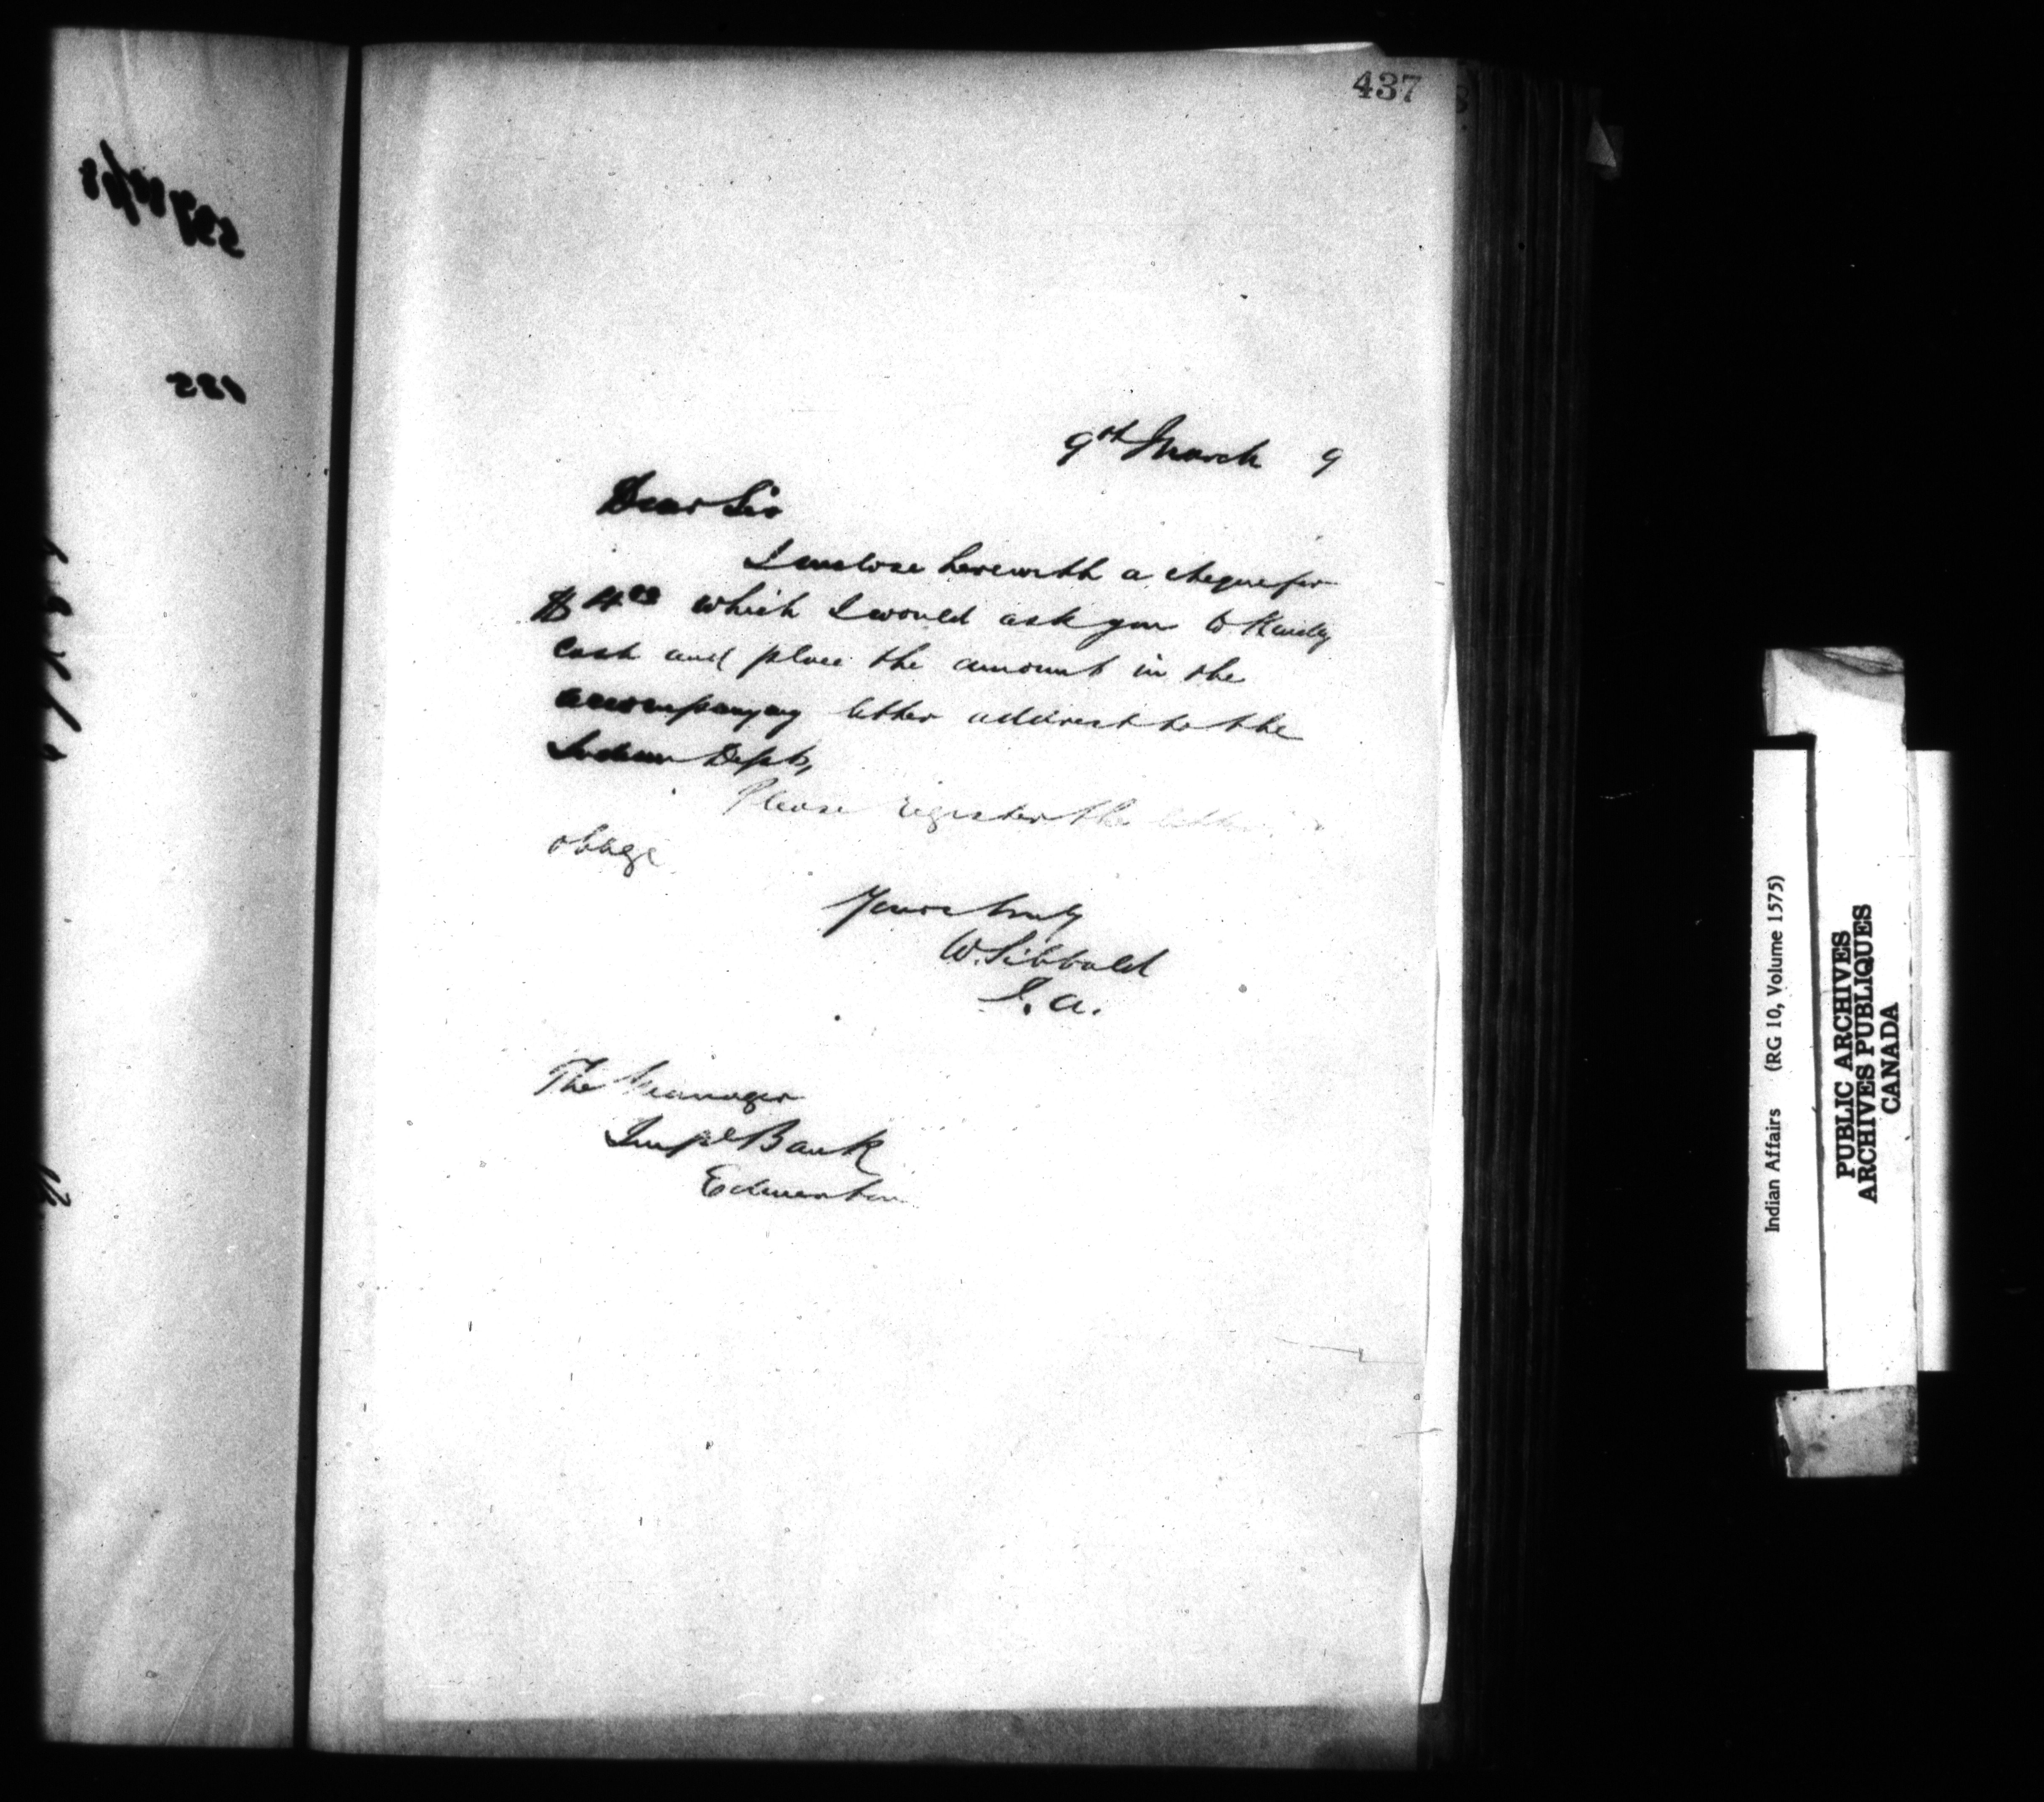 437
9th March 9
Dear Sir
I enclose herewith a cheque for
$4.00 which I would ask you to Kindly
Cash and place the amount in the
accompanying letter addrest to the
Indian Dept,
Please register the letter
oblige
Yours truly
W. Sibbald
I. A.
The Manager
Impl Bank
Edmonton
Indian Affairs (RG 10, Volume 1575)
PUBLIC ARCHIVES
ARCHIVES PUBLIQUES
CANADA